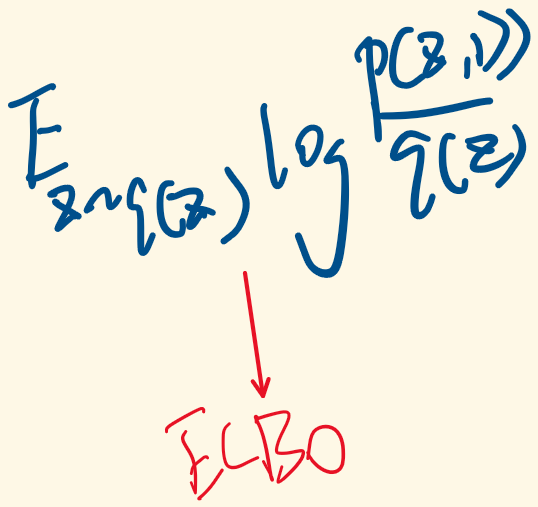 E_{z∼q(z)} log p(z, 1)) / q(z)
ELBO